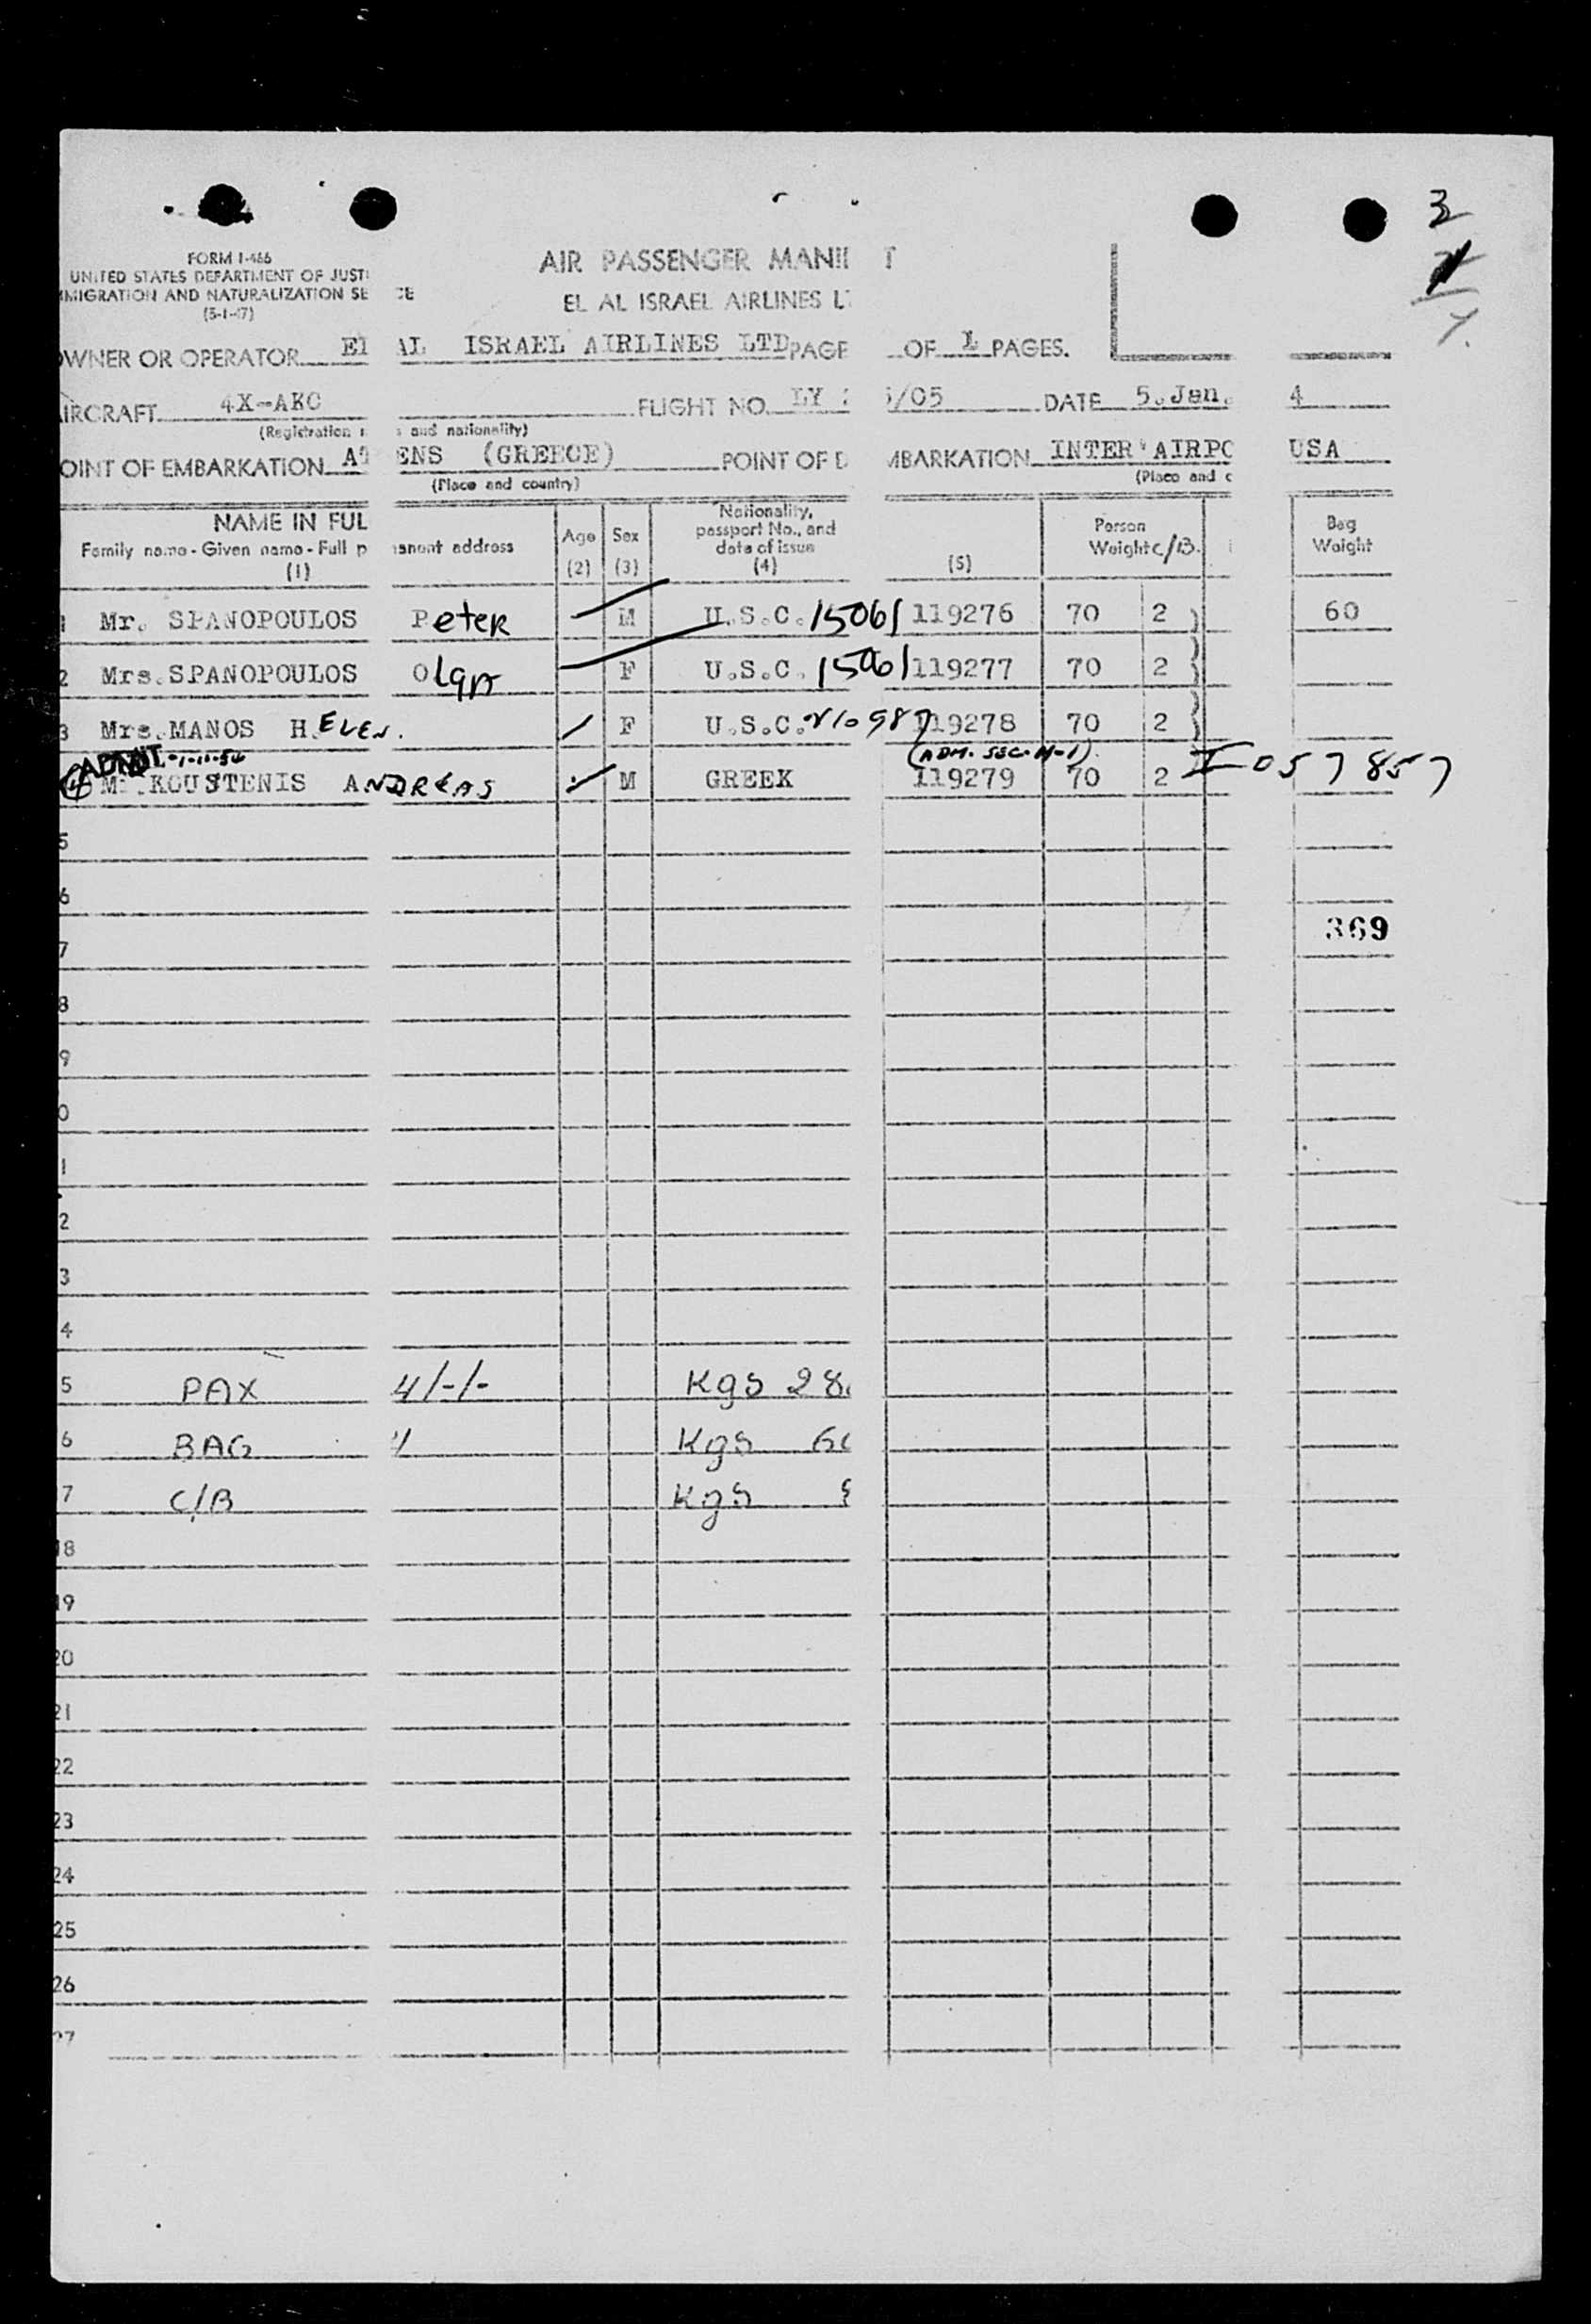 3
1
FORM I-466
UNITED STATES DEPARTMENT OF JUSTI
MMIGRATION AND NATURALIZATION SE CE
(5-1-47)
AIR PASSENGER MANI T
EL AL ISRAEL AIRLINES L
OWNER OR OPERATOR El AL ISRAEL AIRLINES LTD PAGE OF 1 PAGES.
IRCRAFT 4X-AKC FLIGHT NO. LY 5/05 DATE 5.Jan. 4
(Registration and nationality)
OINT OF EMBARKATION AT ENS (GREECE) POINT OF D MBARKATION INTER'AIRPO USA
(Place and country) (Place and c
NAME IN FUL
Family name - Given name - Full p anent address
(1)
Age
(2)
Sex
(3)
Nationality, passport No., and date of issue
(4)
(5)
Person Weight
C/B.
Bag Weight
1 Mr. SPANOPOULOS Peter M U.S.C. 15061 119276 70 2 60
2 Mrs. SPANOPOULOS Olga F U.S.C. 15061 119277 70 2
3 Mrs. MANOS HELEN. F U.S.C. 119278 70 2
ADMIT. 1-11-54 (ADM. SEC. H-1)
4 M .KOUSTENIS ANDREAS M GREEK 119279 70 2 I-057857
5
6
369
7
8
9
0
1
2
3
4
5 PAX 4/-/- Kgs 28
6 BAG 4 Kgs 6
7 C/B Kgs
18
19
20
21
22
23
24
25
26
27